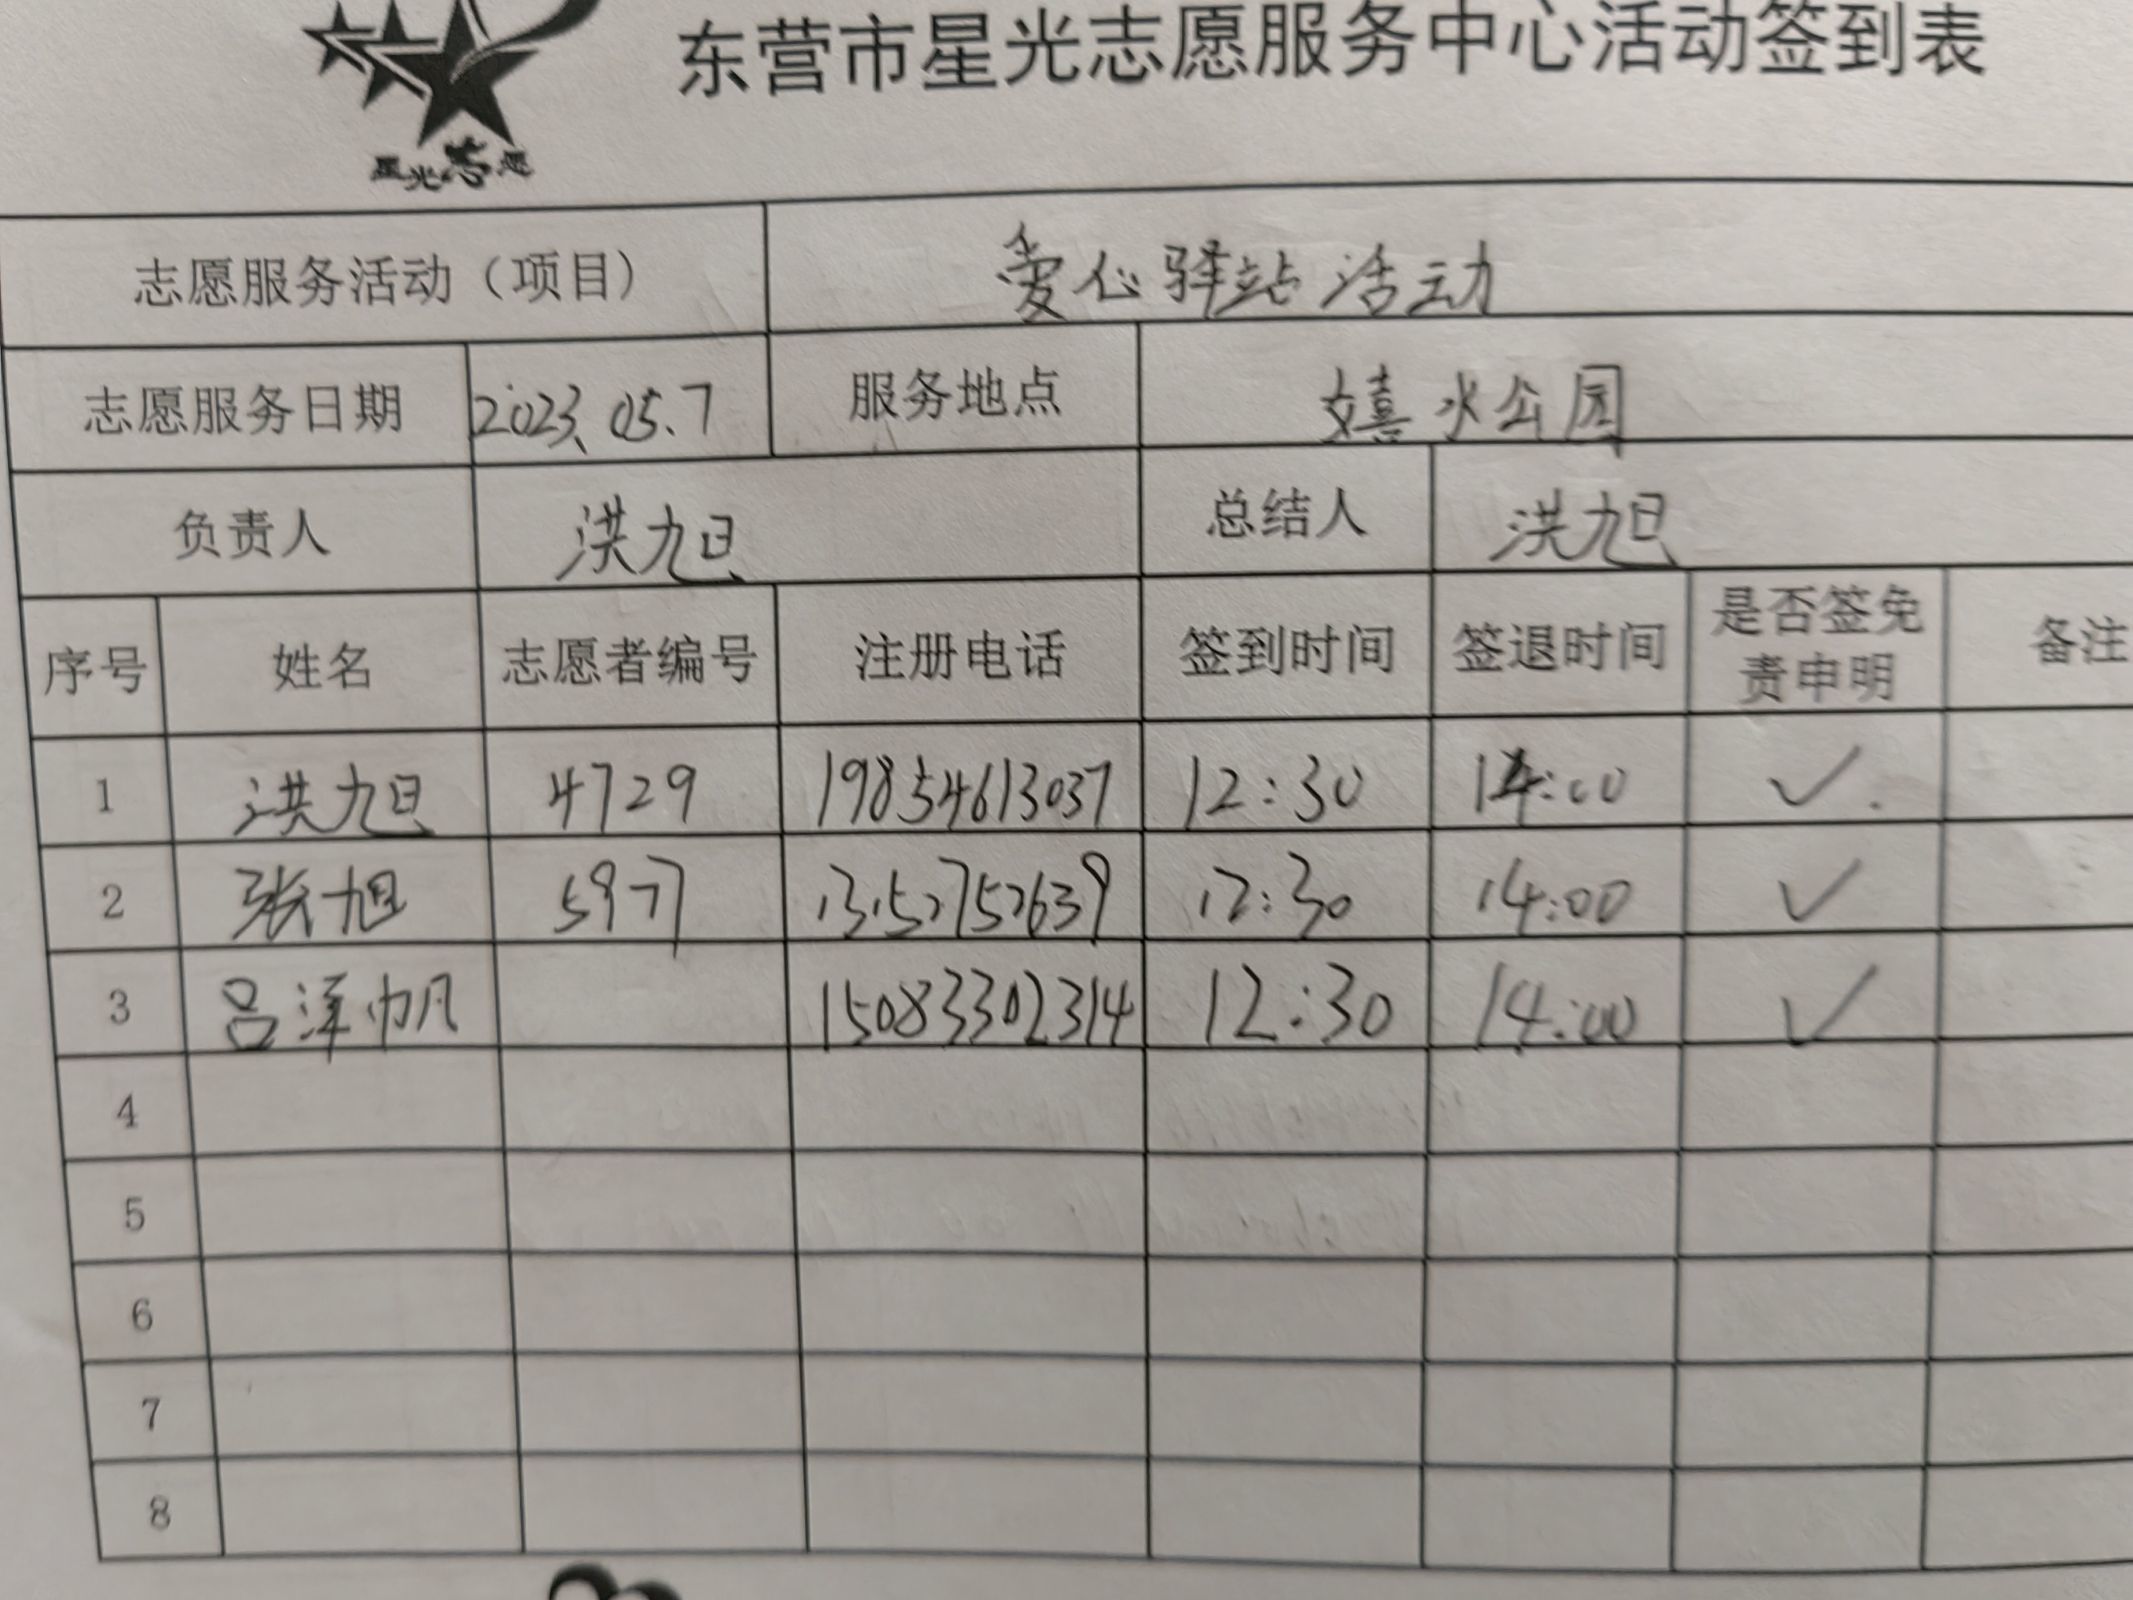 东营市星光志愿服务中心活动签到表
星光志愿
志愿服务活动（项目） 爱心驿站活动
志愿服务日期 2023.05.7 服务地点 嬉水公园
负责人 洪旭 总结人 洪旭
序号 姓名 志愿者编号 注册电话 签到时间 签退时间 是否签免责申明 备注
1 洪旭 4729 19854613037 12:30 14:00 ✓
2 张旭 5977 13152752639 12:30 14:00 ✓
3 吕泽帆 15083302314 12:30 14:00 ✓
4
5
6
7
8